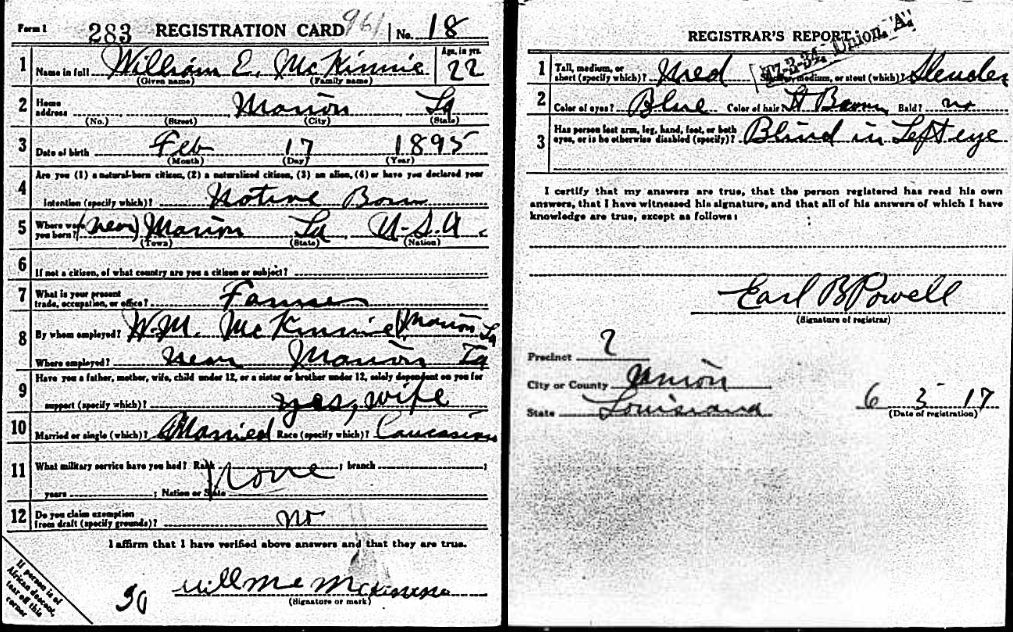 Form 1 283 REGISTRATION CARD 961 No. 18
1 Name in full William E. McKinnie Age, in yrs. 22
(Given name) (Family name)
2 Home address Marion La
(No.) (Street) (City) (State)
3 Date of birth Feb 17 1895
(Month) (Day) (Year)
4 Are you (1) a natural-born citizen, (2) a naturalized citizen, (3) an alien, (4) or have you declared your
intention (specify which)? Native Born
5 Where were you born? (near) Marion La U-S.A.
(Town) (State) (Nation)
6 If not a citizen, of what country are you a citizen or subject?
7 What is your present trade, occupation, or office? Farmer
8 By whom employed? W.M. McKinnie Marion La
Where employed? near Marion La
9 Have you a father, mother, wife, child under 12, or a sister or brother under 12, solely dependent on you for
support (specify which)? yes, wife
10 Married or single (which)? Married Race (specify which)? Caucasian
11 What military service have you had? Rank None ; branch ;
years ; Nation or State
12 Do you claim exemption from draft (specify grounds)? no
I affirm that I have verified above answers and that they are true.
(Signature or mark)
If person is of
African descent,
tear off this
corner
REGISTRAR'S REPORT
17-2-32. Union "A"
1 Tall, medium, or short (specify which)? Med Slender, medium, or stout (which)? Slender
2 Color of eyes? Blue Color of hair? Lt Brown Bald? no
3 Has person lost arm, leg, hand, foot, or both
eyes, or is he otherwise disabled (specify)? Blind in Left eye
I certify that my answers are true, that the person registered has read his own
answers, that I have witnessed his signature, and that all of his answers of which I have
knowledge are true, except as follows:
Earl B Powell
(Signature of registrar)
Precinct
City or County Union
State Louisiana 6 5 17
(Date of registration)